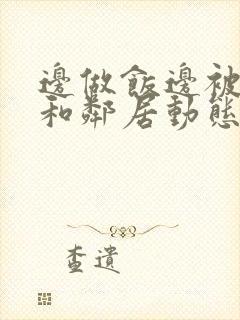 邊做飯邊被
和鄰居動態
查遺